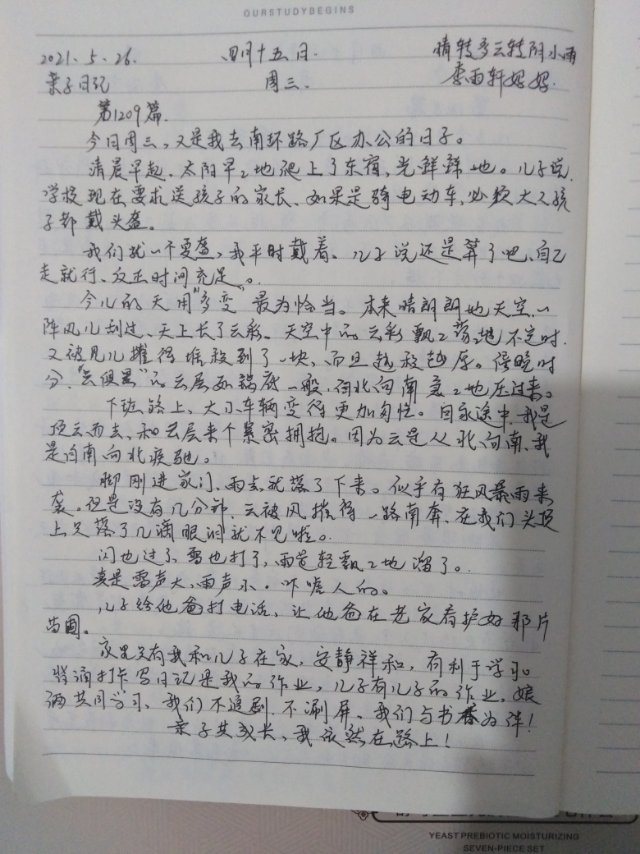 OURSTUDYBEGINS
2021.5.26. 四月十五日. 晴转多云转阴小雨
亲子日记 周三. 李雨轩妈妈.
第1209篇.
今日周三,又是我去南环路厂区办公的日子。
清晨早起、太阳早早地爬上了东宿,光鲜鲜地。儿子说,
学校现在要求送孩子的家长、如果是骑电动车,必须大人孩
子都戴头盔。
我们就一个头盔,我平时戴着、儿子说还是算了吧、自己
走就行、反正时间充足。
今儿的天用"多变"最为恰当。本来晴朗朗的天空,一
阵风儿刮过、天上长了云彩。天空中的云彩飘飘落地不定时.
又被风儿撵得堆积到了一块,而且越积越厚。傍晚时
分,"云俱黑"的云层如锅底一般,从北向南急急地压过来。
下班路上,大小车辆变得更加匆忙。回家途中,我是
顶云而去、和云层来个紧密拥抱。因为云是从北向南、我
是自南向北疾驰。
脚刚进家门、雨点就落了下来。似乎有狂风暴雨来
袭。但是没有几分钟,云被风推得一路南奔、在我们头顶
上只落了几滴眼泪就不见啦。
闪也过了,雷也打了,雨竟轻飘飘地溜了。
真是雷声大,雨声小.吓唬人的。
儿子给他爸打电话,让他爸在老家看护好那片
果园。
家里只有我和儿子在家,安静祥和,有利于学习。
背诵打卡写日记是我的作业,儿子有儿子的作业,娘
俩共同学习、我们不追剧、不涮屏、我们与书香为伴!
亲子共成长,我依然在路上!
YEAST PREBIOTIC MOISTURIZING
SEVEN-PIECE SET